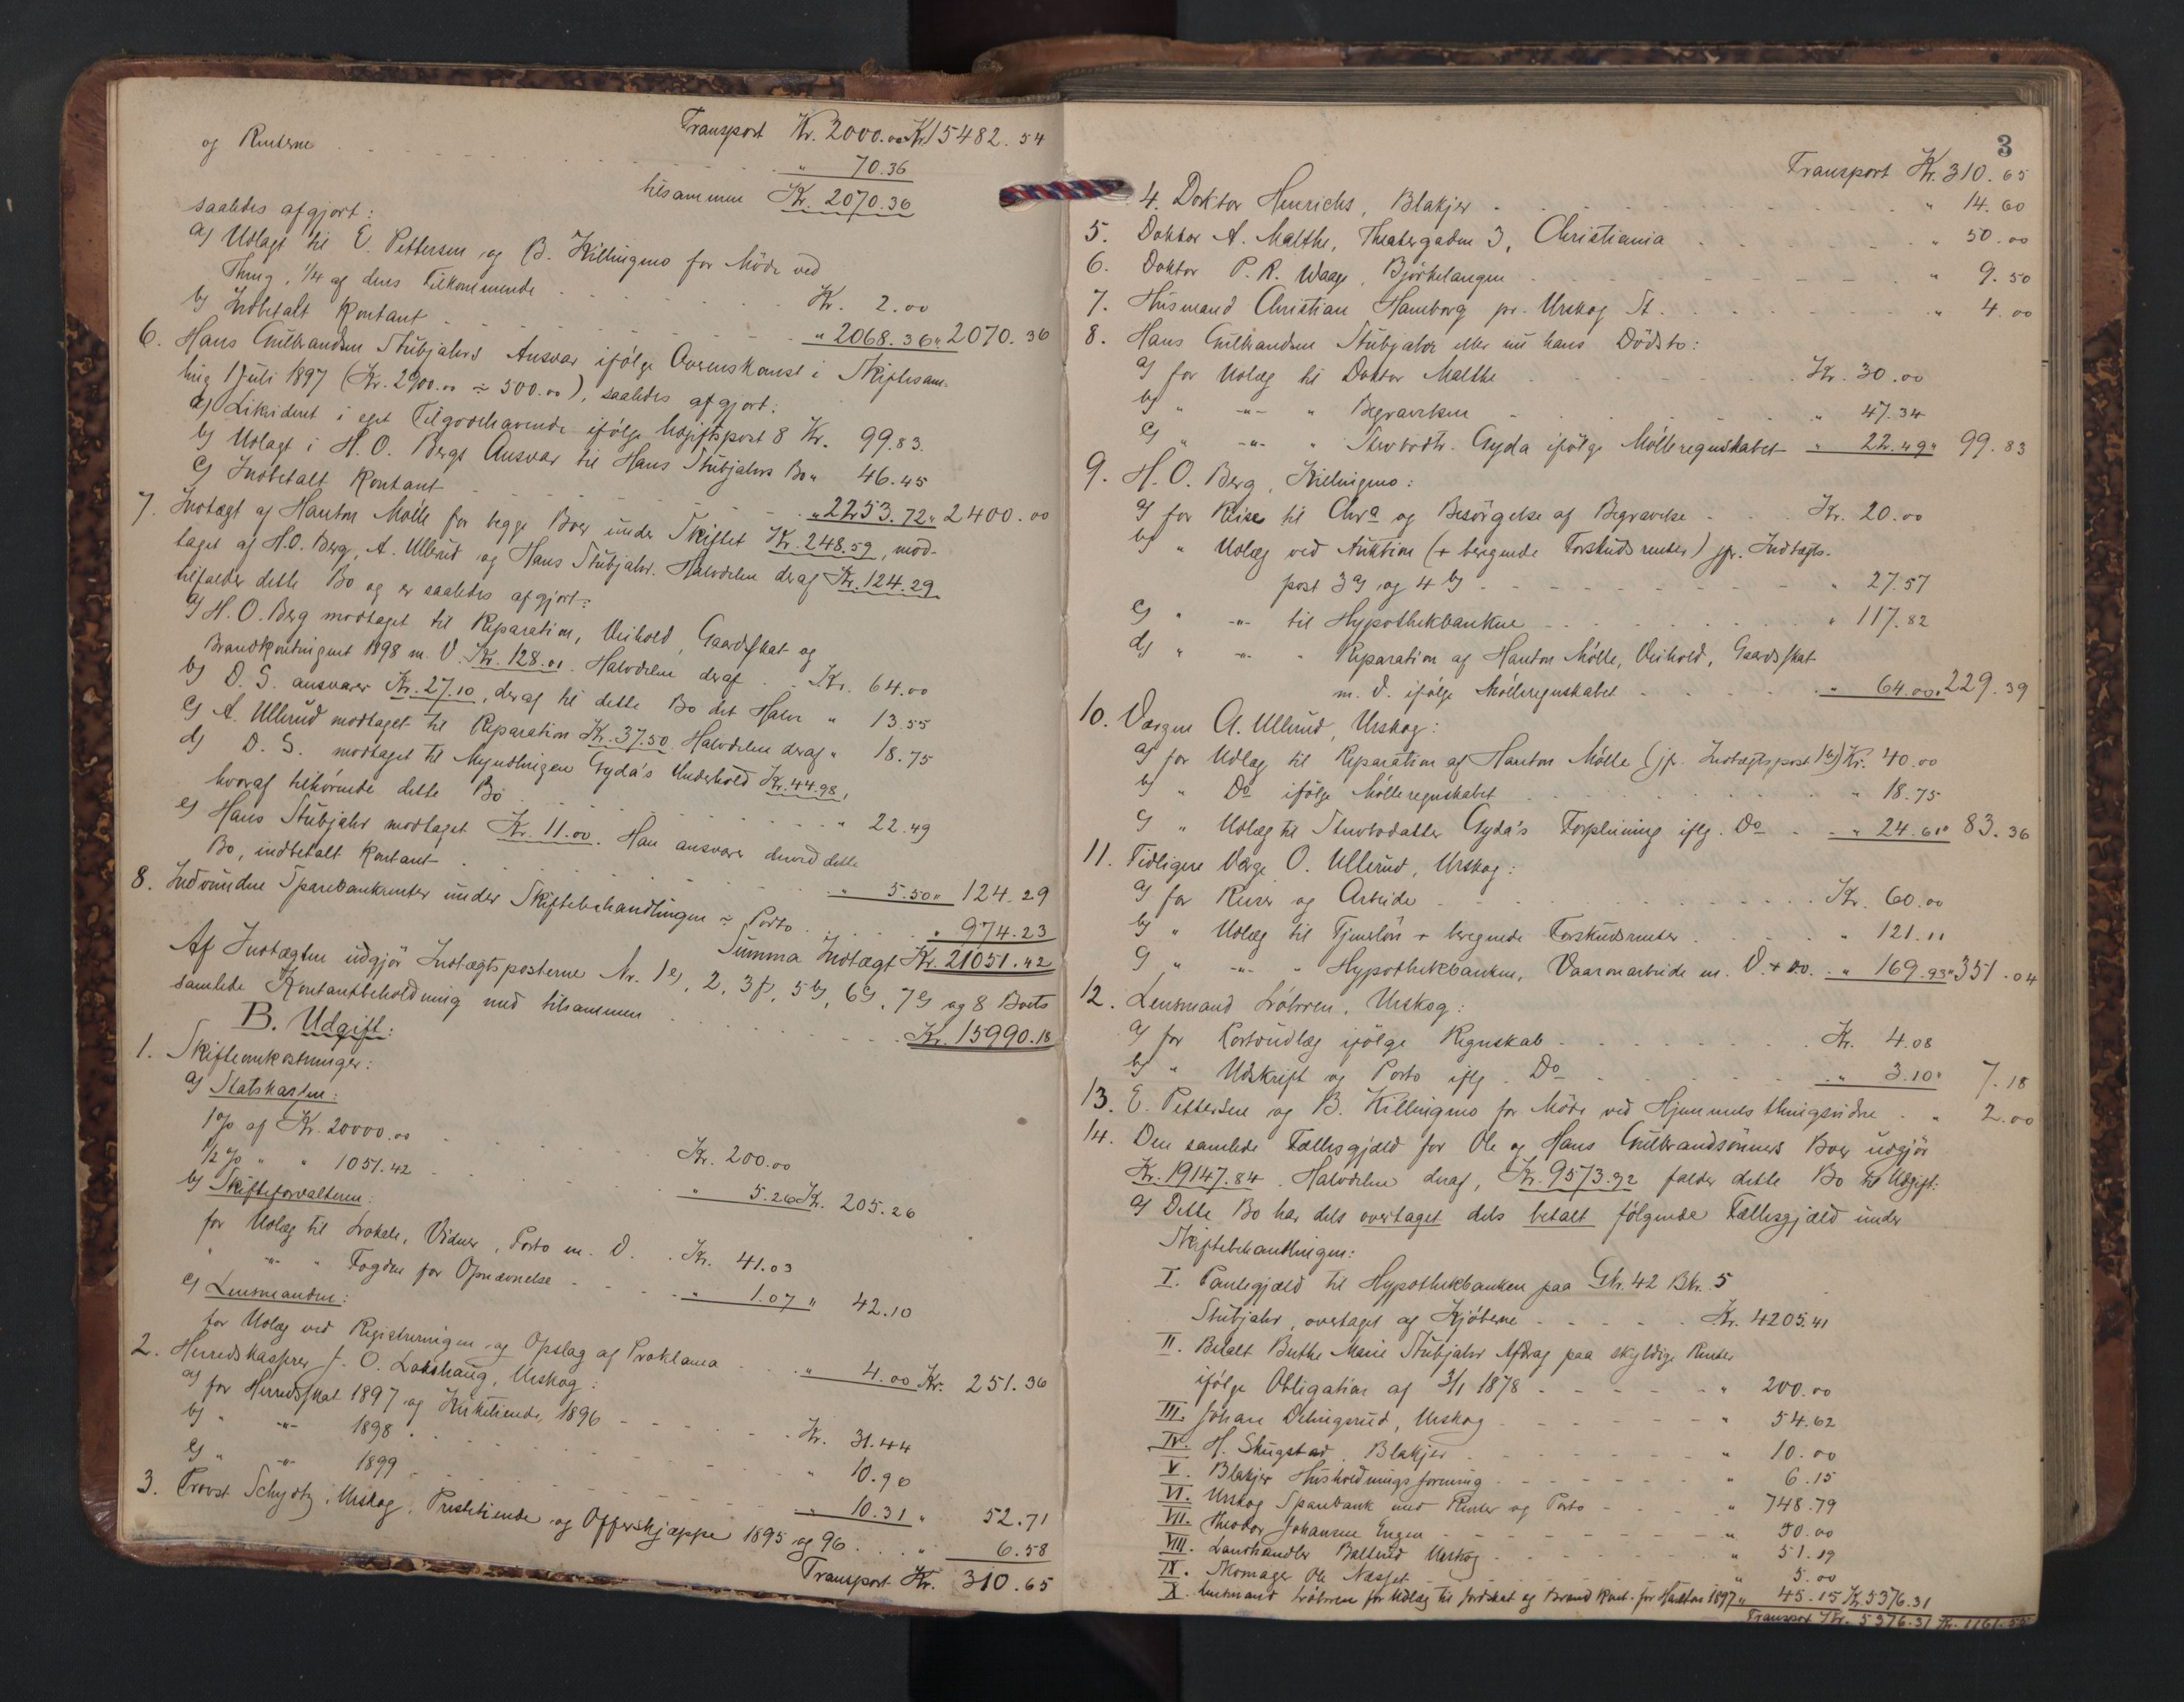 Transport Kr. 2000.00 Kr. 15482.54
og Renterne . . . " 70.36
tilsammen Kr. 2070.36
saaledes afgjort:
a) Udlagt til E. Pettersen og B. Killingmo for Möde ved
Thing, 1/4 af deres Tilkommende . . . Kr. 2.00
b) Indbetalt kontant . . . " 2068.36 " 2070.36
6. Hans Gulbrandsen Stubjahrs Ansvar ifölge Overenskomst i Skiftesam-
ling 1 Juli 1897 (Kr. 2900.00 ÷ 500.00), saaledes afgjort:
a) Likvideret i eget Tilgodehavende ifölge Udgiftspost 8 Kr. 99.83
b) Udlagt i H. O. Bergs Ansvar til Hans Stubjahrs Bo " 46.45
c) Indbetalt kontant . . . " 2253.72 " 2400.00
7. Indtægt af Hanton Mölle for begge Boer under Skiftet Kr. 248.59, mod-
taget af H. O. Berg, A. Ullerud og Hans Stubjahr. Halvdelen deraf Kr. 124.29
tilfalder dette Bo og er saaledes afgjort:
a) H. O. Berg modtaget til Reparation, Veihold, Gaardsskat og
Brandkontingent 1898 m. V. Kr. 128.00. Halvdelen deraf . . Kr. 64.00
b) D. S. ansvarer Kr. 27.10, deraf til dette Bo det Halve " 13.55
c) A. Ullerud modtaget til Reparation Kr. 37.50. Halvdelen deraf " 18.75
d) D. S. modtaget til Myndlingen Gyda's Underhold Kr. 44.98,
hvoraf tilhörende dette Bo . . . " 22.49
e) Hans Stubjahr modtaget Kr. 11.00. Han ansvarer derved dette
Bo, indbetalt kontant . . . " 5.50 " 124.29
8. Indvundne Sparebankrenter under Skiftebehandlingen ÷ Porto . . . " 974.23
Summa Indtægt Kr. 21051.42
Af Indtægten udgjör Indtægtsposterne Nr. 1 e), 2, 3 f), 5 b), 6 c), 7 e) og 8 Boets
samlede Kontantbeholdning med tilsammen . . . Kr. 15990.18
B. Udgift:
1. Skifteomkostninger:
a) Statskassen:
1% af Kr. 20000.00 . . . Kr. 200.00
1/2% " " 1051.42 . . . " 5.26 Kr. 205.26
b) Skifteforvalteren:
for Udlæg til Lokale, Vidner, Porto m. V. . Kr. 41.03
" -"- " Fogden for Opnævnelse . . . " 1.07 " 42.10
c) Lensmanden:
for Udlæg ved Registreringen og Opslag af Proklama . . " 4.00 Kr. 251.36
2. Herredskasserer J. O. Lokshaug, Urskog:
a) for Herredsskat 1897 og Kirketiende, 1896 . . . Kr. 31.44
b) " -"- 1898 . . . " 10.96
c) " -"- 1899 . . . " 10.31 " 52.71
3. Provst Schydtz, Urskog, Prestetiende og Offerskjæppe 1895 og 96 . . . " 6.58
Transport Kr. 310.65
3
Transport Kr. 310.65
4. Doktor Henrichs, Blakjer . . . " 14.60
5. Doktor A. Malthe, Theatergaden 3, Christiania . . . " 50.00
6. Doktor P. R. Waage, Björkelangen . . . " 9.50
7. Husmand Christian Hamborg pr. Urskog St. . . . " 4.00
8. Hans Gulbrandsen Stubjahr eller nu hans Dödsbo:
a) for Udlæg til Doktor Malthe . . . Kr. 30.00
b) " -"- " Begravelsen . . . " 47.34
c) " -"- " Stivbodtr. Gyda ifölge Mölleregnskabet " 22.49 " 99.83
9. H. O. Berg, Killingmo:
a) for Reise til Chra og Besörgelse af Begravelse . . Kr. 20.00
b) " Udlæg ved Auktion (+ beregnede Forskudsrenter) jfr. Indtægts-
post 3 a) og 4 b) . . . " 27.57
c) " -"- til Hypothekbanken . . . " 117.82
d) " -"- " Reparation af Hanton Mölle, Veihold, Gaardsskat
m. V. ifölge Mölleregnskabet . . . " 64.00 " 229.39
10. Værgen A. Ullerud, Urskog:
a) for Udlæg til Reparation af Hanton Mölle (jfr. Indtægtspost 1 b) Kr. 40.00
b) " Do ifölge Mölleregnskabet . . . " 18.75
c) " Udlæg til Stivbodatter Gyda's Forpleining iflg. Do . . " 24.61 " 83.36
11. Tidligere Værge O. Ullerud, Urskog:
a) for Reiser og Arbeide . . . Kr. 60.00
b) " Udlæg til Tjenerlön + beregnede Forskudsrenter . . . " 121.11
c) " -"- " Hypothekbanken, Vaaronarbeide m. V. + Do. . . " 169.93 " 351.04
12. Lensmand Lövren, Urskog:
a) for Portoudlæg ifölge Regnskab . . . Kr. 4.08
b) " Udskrift og Porto iflg. Do . . . " 3.10 " 7.18
13. E. Pettersen og B. Killingmo for Möde ved Hjemmelsthingsvidne . . " 2.00
14. Den samlede Fællesgjæld for Ole og Hans Gulbrandsönners Boer udgjör
Kr. 19147.84. Halvdelen deraf, Kr. 9573.92 falder dette Bo til Udgift:
a) Dette Bo har dels overtaget dels betalt fölgende Fællesgjæld under
Skiftebehandlingen:
I. Pantegjæld til Hypothekbanken paa Gr. 42 Br. 5
Stubjahr, overtaget af Kjöberne . . . Kr. 4205.41
II. Betalt Berthe Marie Stubjahr Afdrag paa skyldige Renter
ifölge Obligation af 3/1 1878 . . . " 200.00
III. Johan Delingsrud, Urskog . . . " 54.62
IV. H. Skugstad, Blakjer . . . " 10.00
V. Blakjer Husholdningsforening . . . " 6.15
VI. Urskog Sparebank med Renter og Porto . . . " 748.79
VII. Theodor Johansen Engen . . . " 50.00
VIII. Landhandler Ballerud Urskog . . . " 51.19
IX. Skomager Ole Næsset . . . " 5.00
X. Lensmand Lövren for Udlæg til Jordskat og Brand Kont. for Hanton 1897 " 45.15 Kr. 5376.31
Transport Kr. 5376.31 Kr. 1161.55